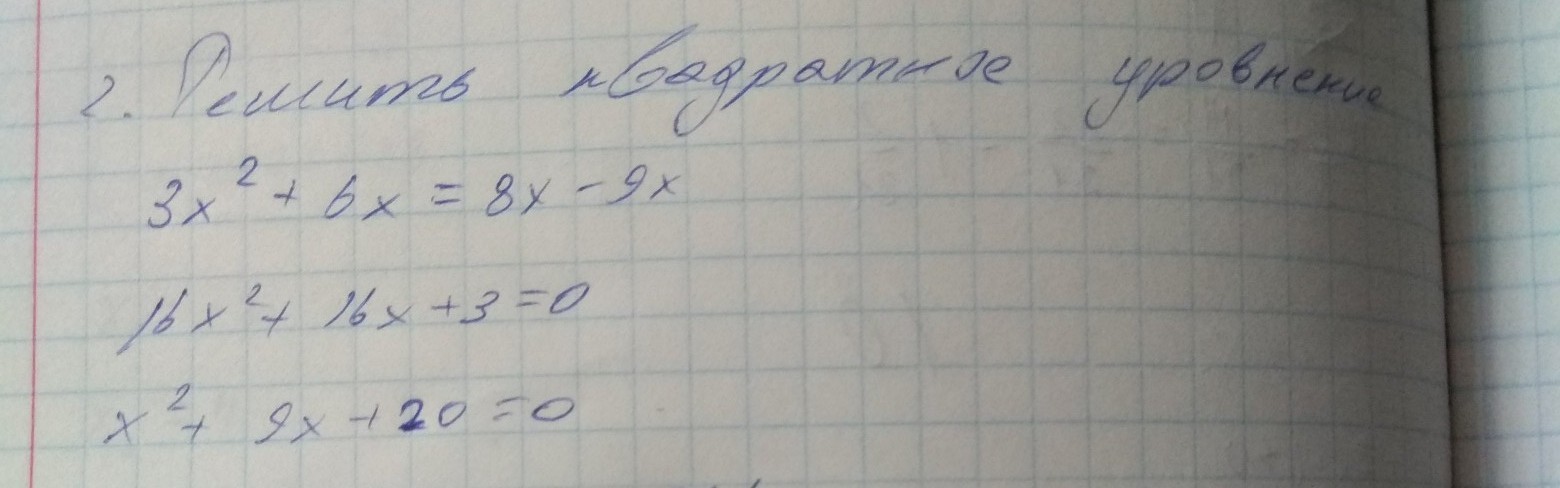 2. Решить квадратное уровнение
3x² + 6x = 8x - 9x
16x² + 16x + 3 = 0
x² + 9x + 20 = 0